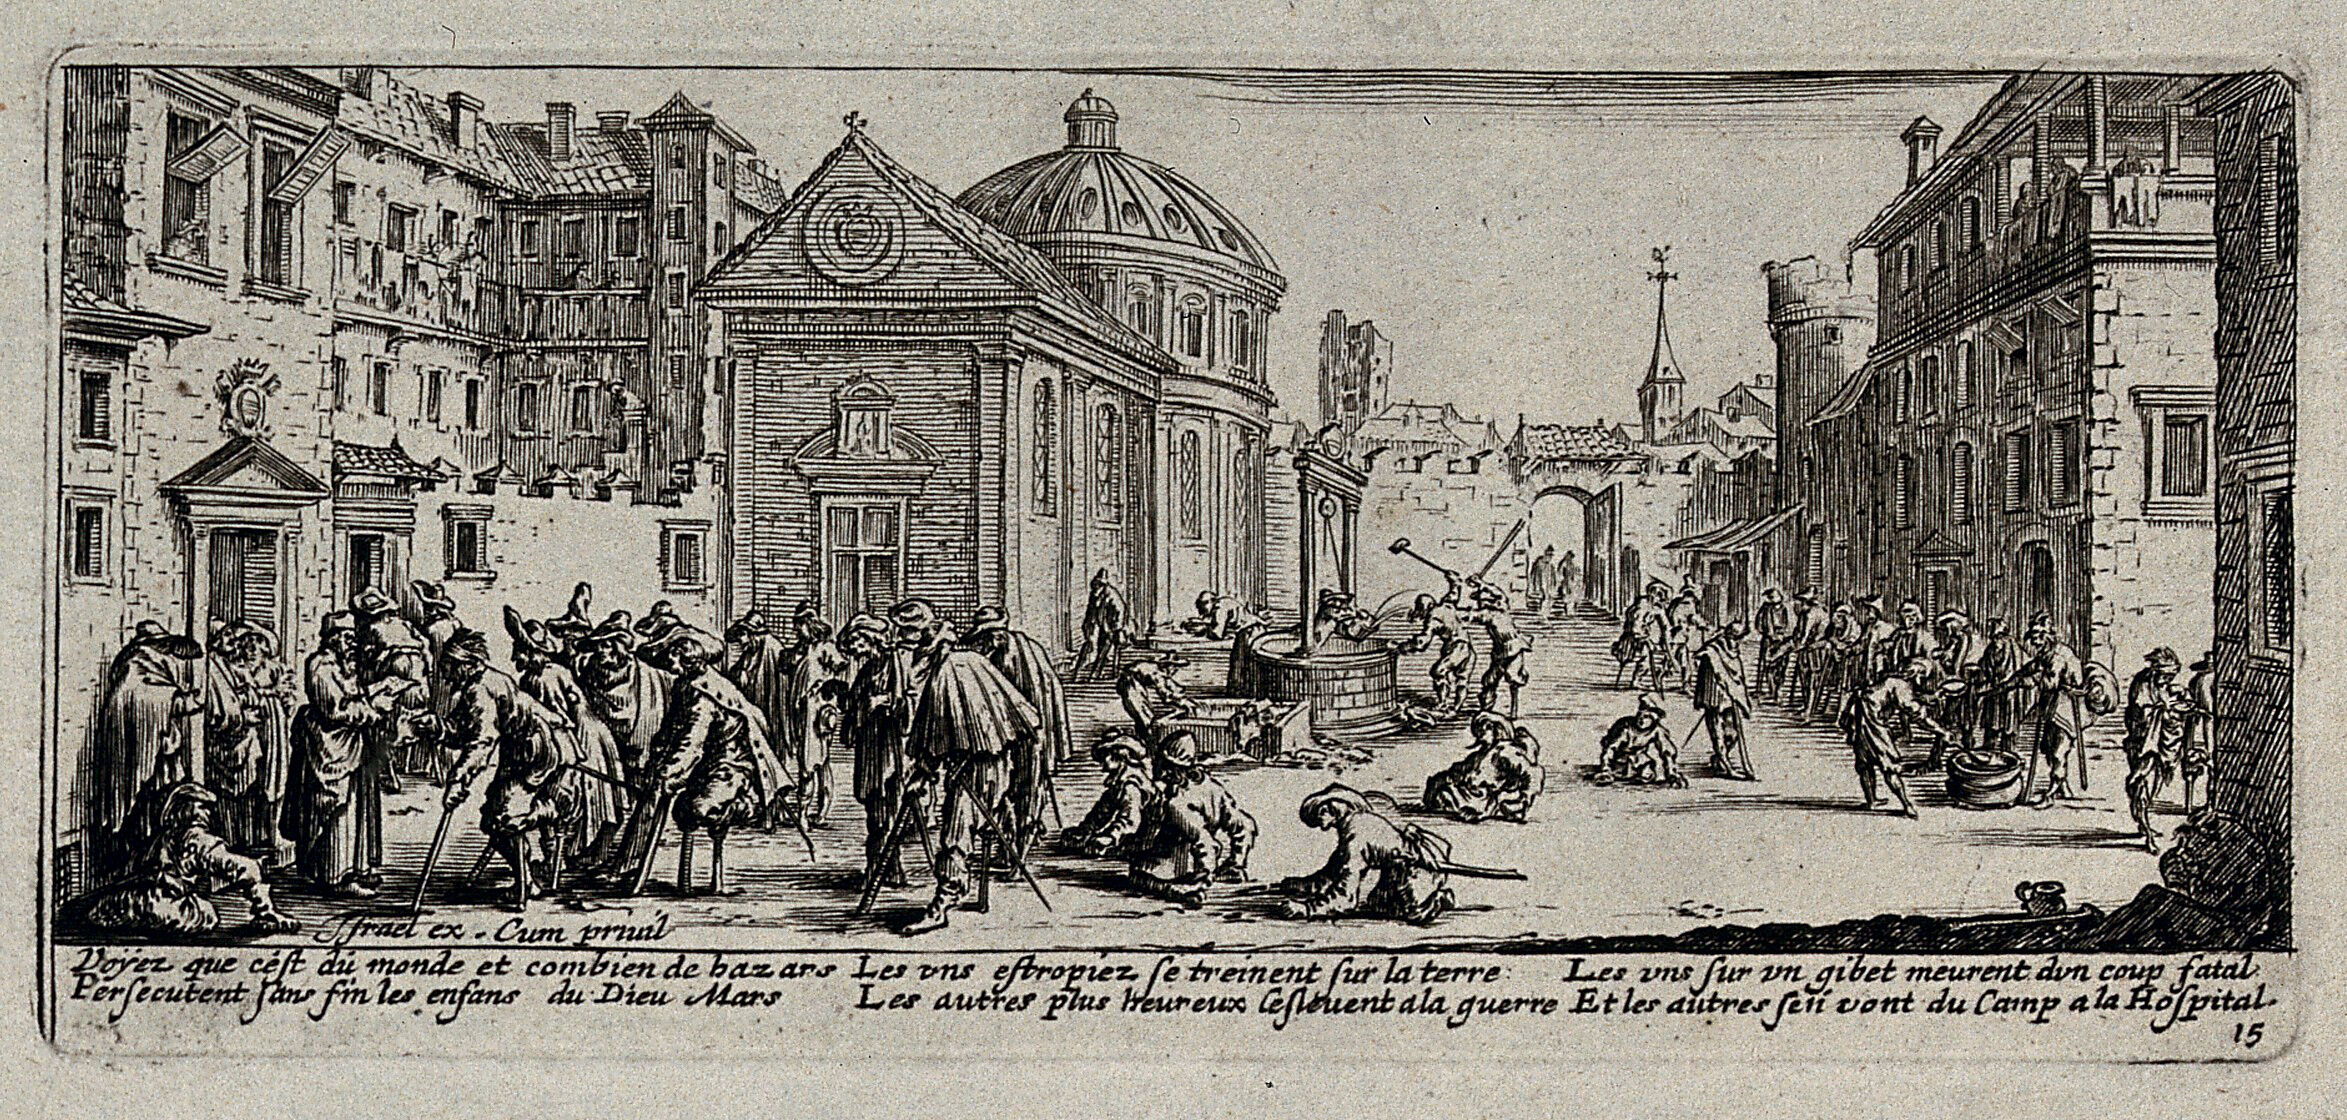 Israel ex. Cum priuil
Voyez que cést du monde et combien de hazars
Persecutent sans fin les enfans du Dieu Mars
Les vns estropiez se treinent sur la terre:
Les autres plus heureux s'eslèuent a la guerre
Les vns sur vn gibet meurent dvn coup fatal
Et les autres s'en vont du Camp a la Hospital.
15